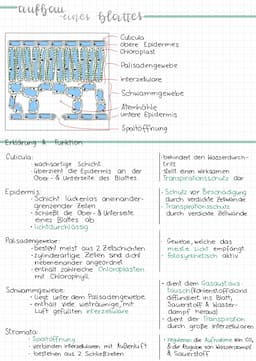 aufbau
eines blattes
Cuticula
obere Epidermis
Chloroplast
Palisadengewebe
interzellulare
Schwammgewebe
Atemhöhle
untere Epidermis
Spaltöffnung
Erklärung & Funktion
Cuticula:
· wachsartige Schicht
· überzieht die Epidermis an der
Ober- & Unterseite des Blattes
· behindert den Wasserdurch-
tritt
· stellt einen wirksamen
Transpirationsschutz dar
Epidermis:
· Schicht lückenlos aneinander-
grenzender Zellen
· schließt die Ober- & Unterseite
eines Blattes ab
· lichtdurchlässig
· Schutz vor Beschädigung
durch verdickte Zellwände
· Transpirationsschutz
durch verdickte Zellwände
Palisadengewebe:
· besteht meist aus 2 Zellschichten
· zylinderartige Zellen sind dicht
nebeneinander angeordnet
· enthält zahlreiche Chloroplasten
mit Chlorophyll
· Gewebe, welches das
meiste Licht empfängt
· Fotosynthetisch aktiv
Schwammgewebe:
· liegt unter dem Palisadengewebe
· enthält viele weiträumige, mit
Luft gefüllten interzellulare
· dient dem Gasaustausch
(Kohlenstoffdioxid
diffundiert ins Blatt,
Sauerstoff & Wasser-
dampf heraus)
· dient der Transpiration
durch große interzellularen
Stromata:
· Spaltöffnung
· verbinden interzellularen mit Außenluft
· bestehen aus 2 Schließzellen
· regulieren die Aufnahme von CO₂
& die Abgabe von Wasserdampf
& Sauerstoff